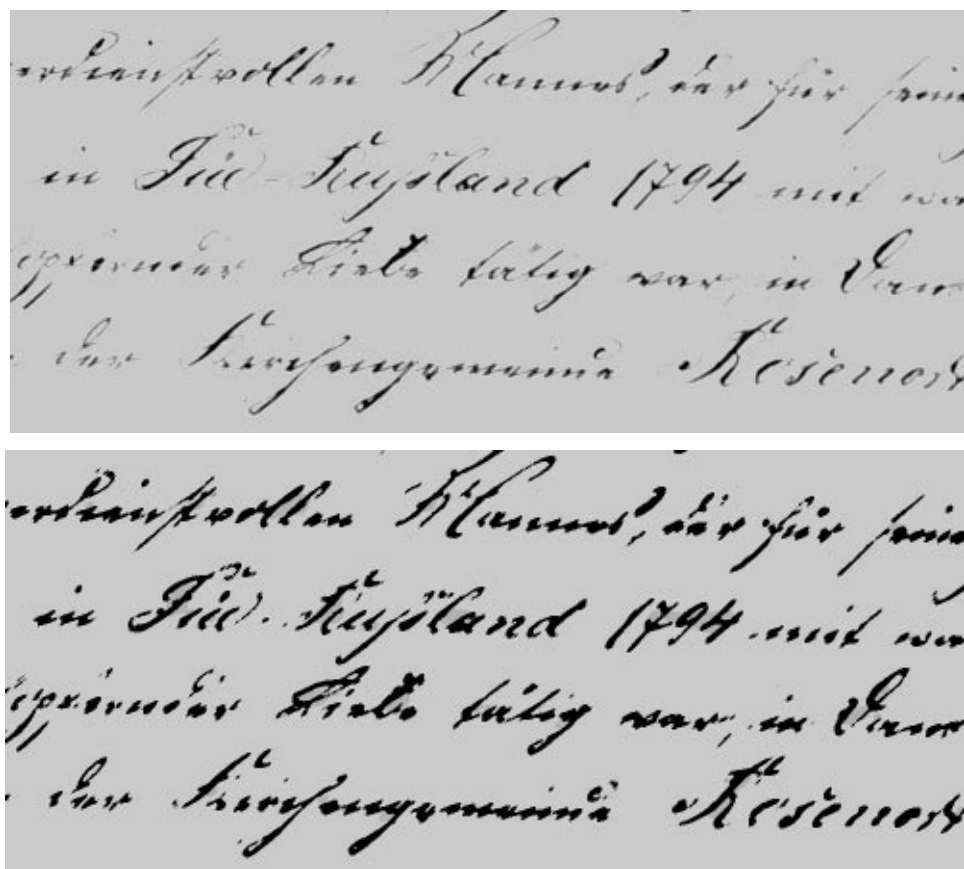 erdienstvollen Mannes, der für seine
in Süd-Rußland 1794 mit wa
opfernder Liebe tätig war, in Dan
der Kirchengemeinde Rosenort
erdienstvollen Mannes, der für seine
in Süd-Rußland 1794 mit wa
opfernder Liebe tätig war, in Dan
der Kirchengemeinde Rosenort